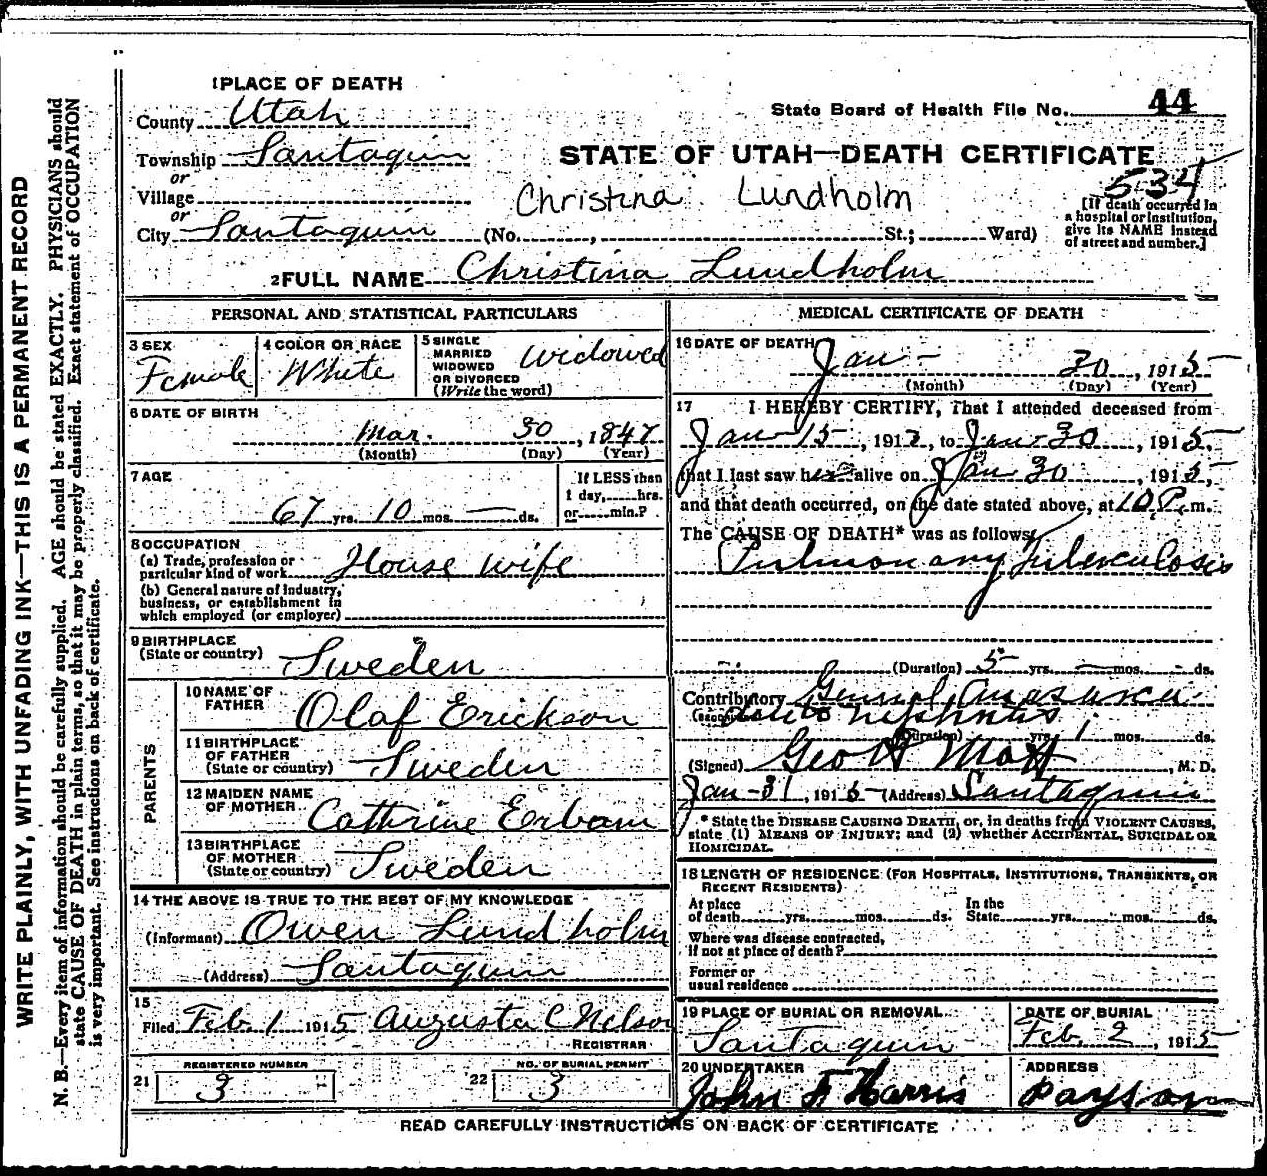 WRITE PLAINLY, WITH UNFADING INK—THIS IS A PERMANENT RECORD
N. B.—Every item of information should be carefully supplied. AGE should be stated EXACTLY. PHYSICIANS should
state CAUSE OF DEATH in plain terms, so that it may be properly classified. Exact statement of OCCUPATION
is very important. See instructions on back of certificate.
1 PLACE OF DEATH
County Utah
State Board of Health File No. 44
Township Santaquin
STATE OF UTAH—DEATH CERTIFICATE
or
Village
534
Christina Lundholm
or
City Santaquin (No. , St.; Ward)
[If death occurred in
a hospital or institution,
give its NAME instead
of street and number.]
2 FULL NAME Christina Lundholm
PERSONAL AND STATISTICAL PARTICULARS
3 SEX
Female
4 COLOR OR RACE
White
5 SINGLE
MARRIED
WIDOWED
OR DIVORCED
(Write the word)
Widowed
6 DATE OF BIRTH
Mar. 30, 1847
(Month) (Day) (Year)
7 AGE
67 yrs. 10 mos. — ds.
If LESS than
1 day, hrs.
or min.?
8 OCCUPATION
(a) Trade, profession or
particular kind of work House wife
(b) General nature of industry,
business, or establishment in
which employed (or employer)
9 BIRTHPLACE
(State or country) Sweden
PARENTS
10 NAME OF
FATHER Olaf Erickson
11 BIRTHPLACE
OF FATHER
(State or country) Sweden
12 MAIDEN NAME
OF MOTHER Cathrine
13 BIRTHPLACE
OF MOTHER
(State or country) Sweden
14 THE ABOVE IS TRUE TO THE BEST OF MY KNOWLEDGE
(Informant) Owen Lundholm
(Address) Santaquin
15
Filed Feb. 1 1915 Augusta C Nelson
REGISTRAR
21 REGISTERED NUMBER
3
22 NO. OF BURIAL PERMIT
3
MEDICAL CERTIFICATE OF DEATH
16 DATE OF DEATH
Jan — 30, 1915
(Month) (Day) (Year)
17 I HEREBY CERTIFY, That I attended deceased from
Jan 15, 191 , to Jan 30, 1915,
that I last saw her alive on Jan 30, 1915,
and that death occurred, on the date stated above, at 10 P. m.
The CAUSE OF DEATH* was as follows:
Pulmonary Tuberculosis
(Duration) 5 yrs. — mos. - ds.
Contributory General Anasarca
Nephritis
(Duration) yrs. 1 mos. ds.
(Signed) Geo , M. D.
Jan-31, 1915 (Address) Santaquin
* State the DISEASE CAUSING DEATH, or, in deaths from VIOLENT CAUSES,
state (1) MEANS OF INJURY; and (2) whether ACCIDENTAL, SUICIDAL OR
HOMICIDAL.
18 LENGTH OF RESIDENCE (FOR HOSPITALS, INSTITUTIONS, TRANSIENTS, OR
RECENT RESIDENTS)
At place
of death yrs. mos. ds.
In the
State yrs. mos. ds.
Where was disease contracted,
if not at place of death?
Former or
usual residence
19 PLACE OF BURIAL OR REMOVAL
Santaquin
DATE OF BURIAL
Feb. 2, 1915
20 UNDERTAKER
John F Harris
ADDRESS
Payson
READ CAREFULLY INSTRUCTIONS ON BACK OF CERTIFICATE